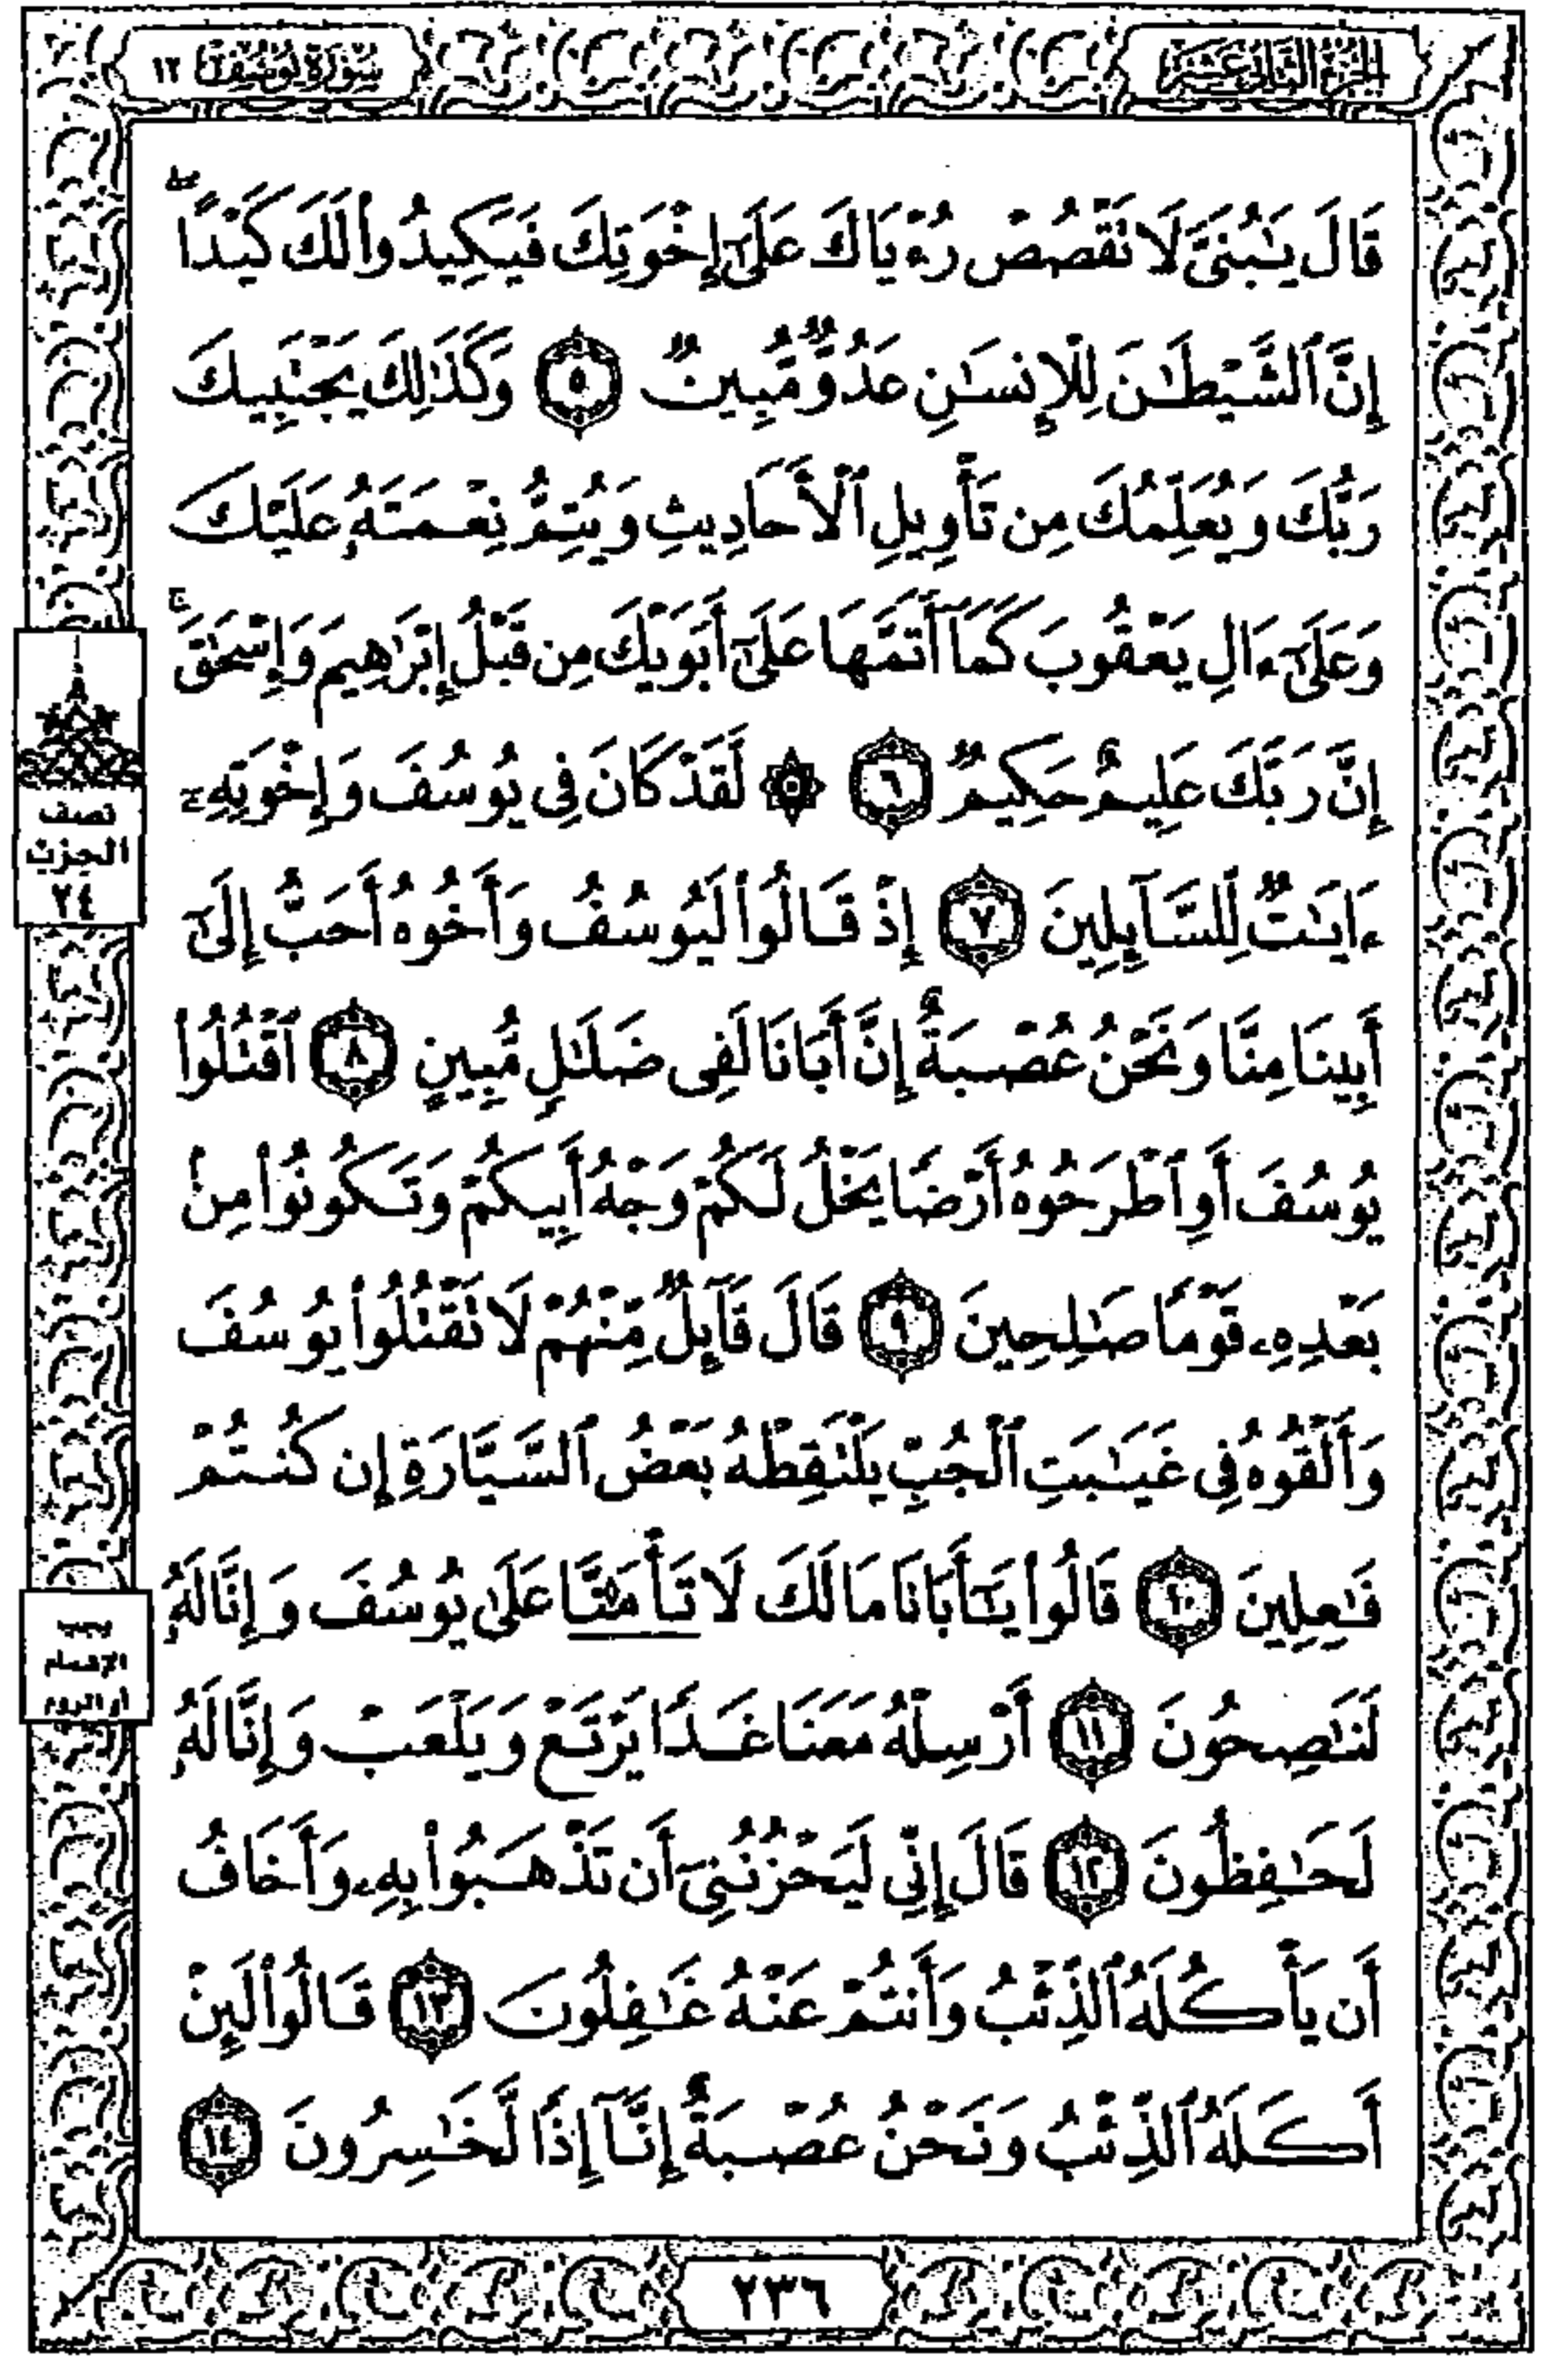 الجزء الثاني عشر
سورة يوسف ١٢
قَالَ يَٰبُنَىَّ لَا تَقْصُصْ رُءْيَاكَ عَلَىٰٓ إِخْوَتِكَ فَيَكِيدُوا۟ لَكَ كَيْدًا ۖ
إِنَّ ٱلشَّيْطَٰنَ لِلْإِنسَٰنِ عَدُوٌّ مُّبِينٌ ٥ وَكَذَٰلِكَ يَجْتَبِيكَ
رَبُّكَ وَيُعَلِّمُكَ مِن تَأْوِيلِ ٱلْأَحَادِيثِ وَيُتِمُّ نِعْمَتَهُۥ عَلَيْكَ
وَعَلَىٰٓ ءَالِ يَعْقُوبَ كَمَآ أَتَمَّهَا عَلَىٰٓ أَبَوَيْكَ مِن قَبْلُ إِبْرَٰهِيمَ وَإِسْحَٰقَ ۚ
إِنَّ رَبَّكَ عَلِيمٌ حَكِيمٌ ٦ ۞ لَّقَدْ كَانَ فِى يُوسُفَ وَإِخْوَتِهِۦٓ
ءَايَٰتٌ لِّلسَّآئِلِينَ ٧ إِذْ قَالُوا۟ لَيُوسُفُ وَأَخُوهُ أَحَبُّ إِلَىٰٓ
أَبِينَا مِنَّا وَنَحْنُ عُصْبَةٌ إِنَّ أَبَانَا لَفِى ضَلَٰلٍ مُّبِينٍ ٨ ٱقْتُلُوا۟
يُوسُفَ أَوِ ٱطْرَحُوهُ أَرْضًا يَخْلُ لَكُمْ وَجْهُ أَبِيكُمْ وَتَكُونُوا۟ مِنۢ
بَعْدِهِۦ قَوْمًا صَٰلِحِينَ ٩ قَالَ قَآئِلٌ مِّنْهُمْ لَا تَقْتُلُوا۟ يُوسُفَ
وَأَلْقُوهُ فِى غَيَٰبَتِ ٱلْجُبِّ يَلْتَقِطْهُ بَعْضُ ٱلسَّيَّارَةِ إِن كُنتُمْ
فَٰعِلِينَ ١٠ قَالُوا۟ يَٰٓأَبَانَا مَا لَكَ لَا تَأْمَ۫نَّا عَلَىٰ يُوسُفَ وَإِنَّا لَهُۥ
لَنَٰصِحُونَ ١١ أَرْسِلْهُ مَعَنَا غَدًا يَرْتَعْ وَيَلْعَبْ وَإِنَّا لَهُۥ
لَحَٰفِظُونَ ١٢ قَالَ إِنِّى لَيَحْزُنُنِىٓ أَن تَذْهَبُوا۟ بِهِۦ وَأَخَافُ
أَن يَأْكُلَهُ ٱلذِّئْبُ وَأَنتُمْ عَنْهُ غَٰفِلُونَ ١٣ قَالُوا۟ لَئِنْ
أَكَلَهُ ٱلذِّئْبُ وَنَحْنُ عُصْبَةٌ إِنَّآ إِذًا لَّخَٰسِرُونَ ١٤
نصف
الحزب
٢٤
الإشمام
أو الروم
٢٣٦